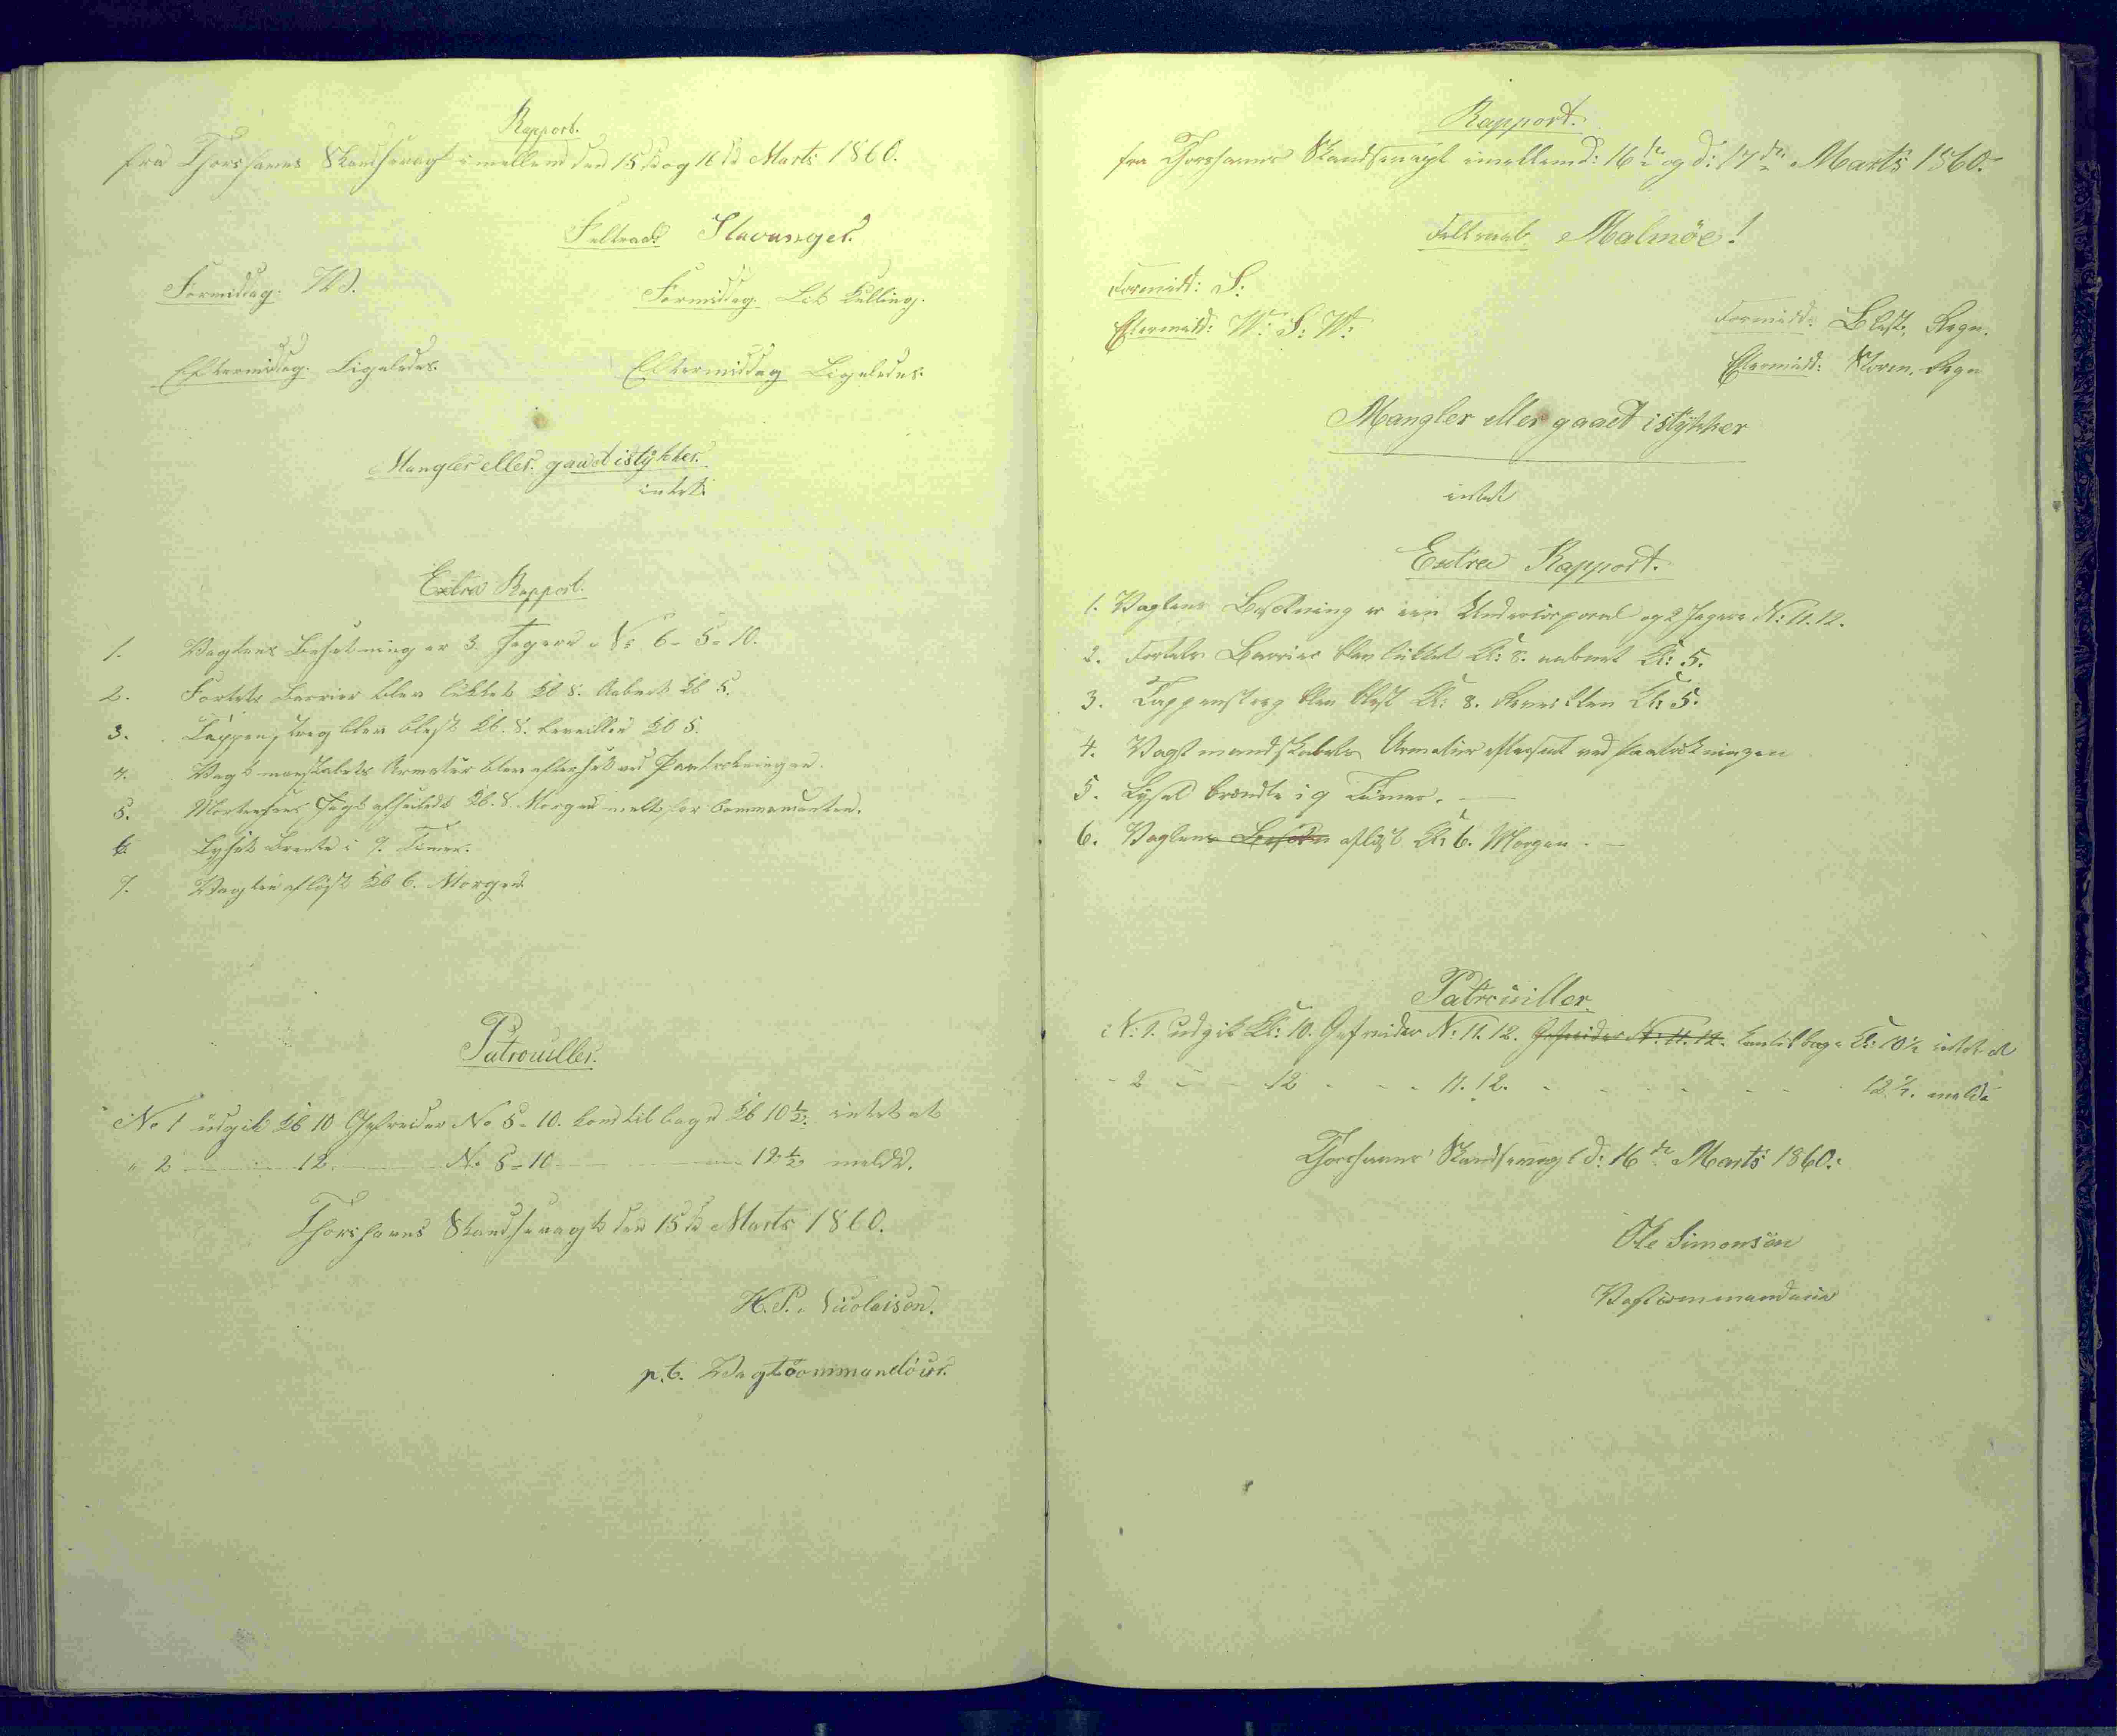 Rapport.
fra Thorshavns Skandsevagt imellem den 15de og 16de Marts 1860.
Feltraab Stavanger.
Formiddag: W.
Formiddag. Lit Kulling.
Eftermiddag. Ligeledes.
Eftermiddag Ligeledes.
Mangler eller gaaet istÿkker.
intet.
Extra Rapport.
1. Vagtens Besetning er 3 Jegere No 6-5-10.
2. Fortets Barrier blev lukket Kl 8. Aabnet Kl 5.
3. Tappenstreg blev blest Kl. 8. Reveillen Kl 5.
4. Vagtmanskabets Armatur blev efterset ved Paatrekningen.
5. Mortensens Jagt afseilede Kl. 8. Morgen meldt for Commandanten.
6. Lyset Brente i 9 Timer.
7. Vagten afløst Kl 6. Morgen
Patrouiller.
No 1 udgik Kl 10 Gefreider No 5-10. kom tilbage Kl 10½. intet at
" 2 12. No 5-10 12½ melde.
Thorshavns Skandsevagt den 15de Marts 1860.
H.P. Nicolaisen.
p.t. Vagtcommandöur.
Rapport.
fra Thorshavns Skandsevagt imellem d: 16de og d: 17de Marts 1860.
Feltraab Malmöe!
Formidd: S:
Eftermidd: W: S: W:
Formidd: Blest, Regn.
Eftermidd: Storm. Regn
Mangler eller gaaet istÿkker
intet
Extra Rapport.
1. Vagtens Besætning er een Undercorporal og 2 Jegere N: 11. 12.
2. Fortets Barrier blev lukket Kl: 8. aabnet Kl: 5.
3. Tappenstreg blev blest Kl: 8. Reveillen Kl: 5.
4. Vagtmandskabets Armatur efterseet ved Paatrækningen
5. Lyset brændte i 9 Timer.
6. Vagtens Besætn afløst Kl: 6. Morgen.
Patrouiller
N: 1. udgik Kl: 10. Gefreider N: 11. 12. Gefreider N: 11. 12. kom tilbage Kl: 10½ intet at
- 2 - - 12 - - - 11. 12. - - - - - - 12½. melde
Thorshavns Skandsevagt d: 16de Marts 1860.
Ole Simonsen
Vagtcommandeur